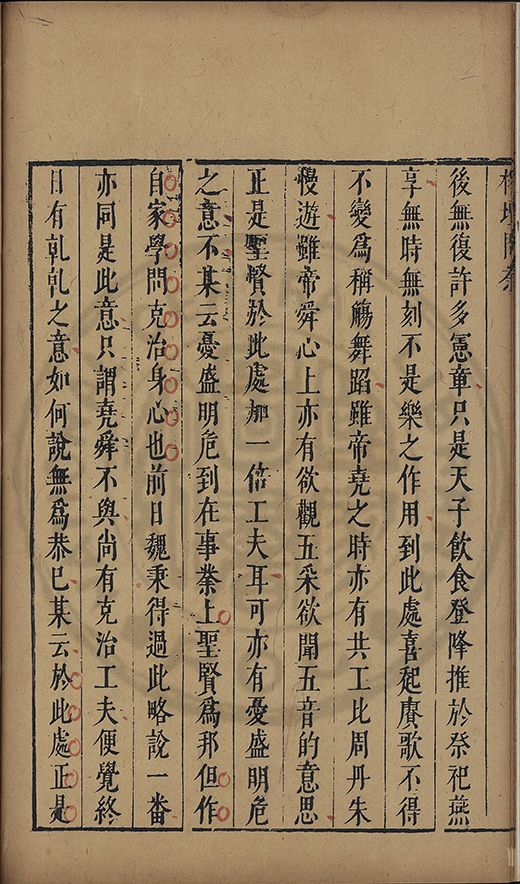 後無復許多憲章只是天子飲食登降推於祭祀燕
享無時無刻不是樂之作用到此處喜起賡歌不得
不變爲稱觴舞蹈雖帝堯之時亦有共工比周丹朱
慢遊雖帝舜心上亦有欲觀五采欲聞五音的意思
正是聖賢於此處加一倍工夫耳可亦有憂盛明危
之意不某云憂盛明危到在事業上聖賢爲邦但作
自家學問克治身心也前日魏秉得過此略說一番
亦同是此意只謂堯舜不與尚有克治工夫便覺終
日有乹乹之意如何說無爲恭巳某云於此處正是